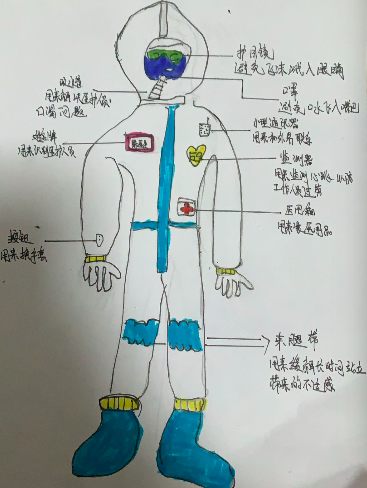 护目镜
避免飞沫溅入眼睛
吸水管
用来解决医护人员
口渴问题
口罩
避免口水飞入嘴巴
小型通讯器
用来和外界联系
用来识别医护人员
监测器
用来监测心跳
工作人员
医用箱
用来装医用品
按钮
用来换手套
束腿带
用来缓解长时间站立
带来的不适感